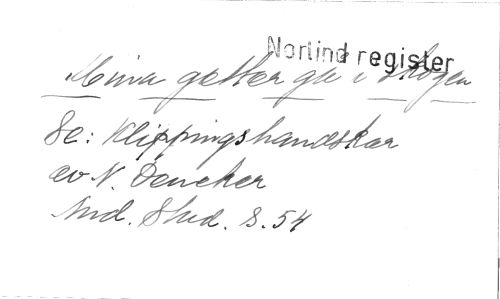 Norlind register
Mina getter gå i skogen
Se: Klippingshandskar
av N. Dencker
Ind. Stud. S. 54